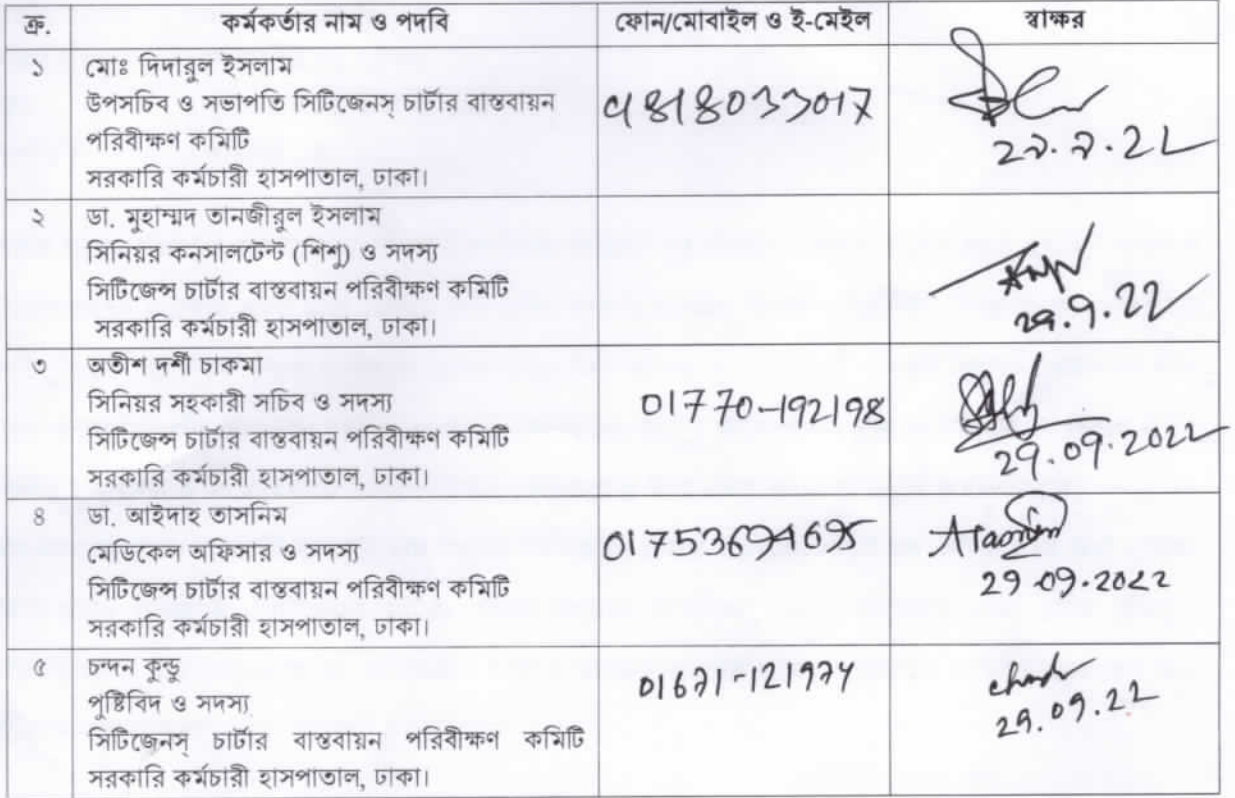 ক্র. কর্মকর্তার নাম ও পদবি ফোন/মোবাইল ও ই-মেইল স্বাক্ষর
১ মোঃ দিদারুল ইসলাম
উপসচিব ও সভাপতি সিটিজেনস্ চার্টার বাস্তবায়ন
পরিবীক্ষণ কমিটি
সরকারি কর্মচারী হাসপাতাল, ঢাকা।
২ ডা. মুহাম্মদ তানজীরুল ইসলাম
সিনিয়র কনসালটেন্ট (শিশু) ও সদস্য
সিটিজেন্স চার্টার বাস্তবায়ন পরিবীক্ষণ কমিটি
সরকারি কর্মচারী হাসপাতাল, ঢাকা।
29.9.22
৩ অতীশ দর্শী চাকমা
সিনিয়র সহকারী সচিব ও সদস্য
সিটিজেন্স চার্টার বাস্তবায়ন পরিবীক্ষণ কমিটি
সরকারি কর্মচারী হাসপাতাল, ঢাকা।
01770-192198
29.09.2022
৪ ডা. আইদাহ তাসনিম
মেডিকেল অফিসার ও সদস্য
সিটিজেন্স চার্টার বাস্তবায়ন পরিবীক্ষণ কমিটি
সরকারি কর্মচারী হাসপাতাল, ঢাকা।
29.09.2022
৫ চন্দন কুন্ডু
পুষ্টিবিদ ও সদস্য
সিটিজেনস্ চার্টার বাস্তবায়ন পরিবীক্ষণ কমিটি
সরকারি কর্মচারী হাসপাতাল, ঢাকা।
01671-121974
29.09.22